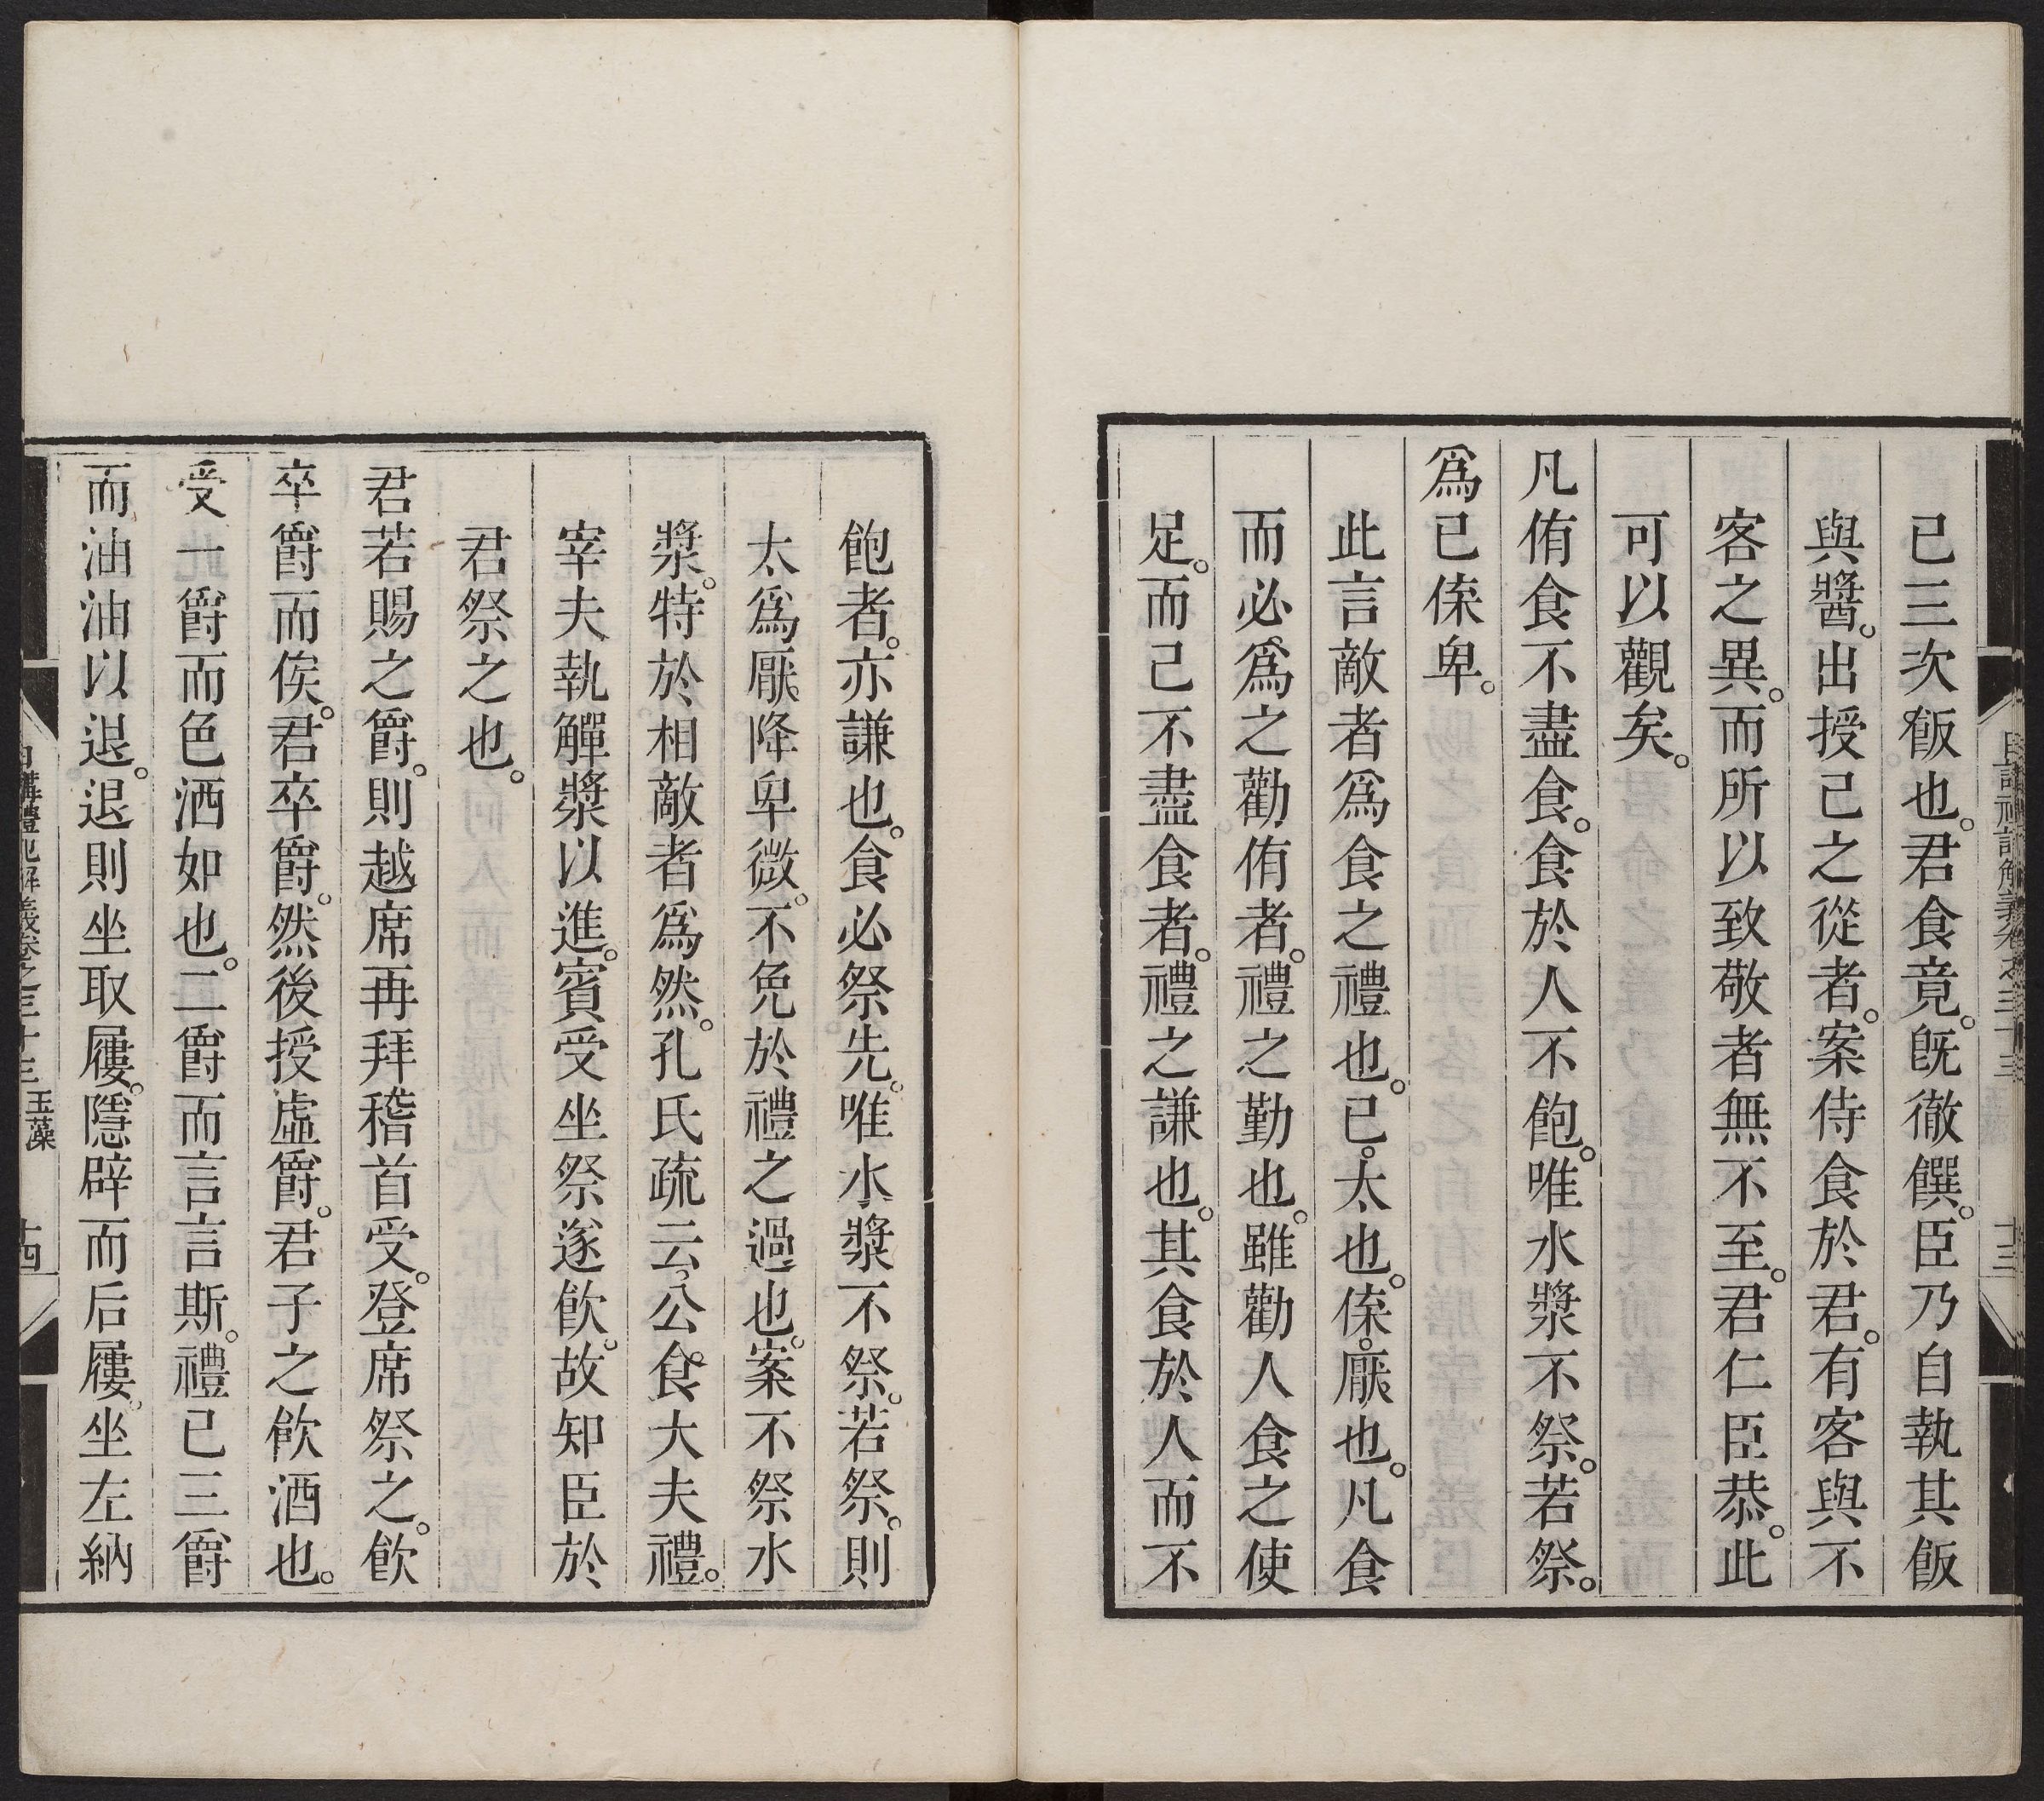 已三次飯也。君食竟。旣徹饌。臣乃自執其飯
與醬。出授己之從者。案侍食於君。有客與不
客之異。而所以致敬者無不至。君仁臣恭。此
可以觀矣。
凡侑食不盡食。食於人不飽。唯水漿不祭。若祭。
爲已㑛卑。
此言敵者爲食之禮也。已。太也。㑛。厭也。凡食
而必爲之勸侑者。禮之勤也。雖勸人食之使
足。而己不盡食者。禮之謙也。其食於人而不
飽者。亦謙也。食必祭先。唯水漿不祭。若祭。則
太爲厭降卑微。不免於禮之過也。案不祭水
漿。特於相敵者爲然。孔氏疏云。公食大夫禮。
宰夫執觶漿以進。賓受坐祭遂飮。故知臣於
君祭之也。
君若賜之爵。則越席再拜稽首受。登席祭之。飮
卒爵而俟。君卒爵。然後授虛爵。君子之飮酒也。
受一爵而色洒如也。二爵而言言斯。禮已三爵
而油油以退。退則坐取屨。隱辟而后屨。坐左納
日講禮記解義卷之三十三 玉藻 十四